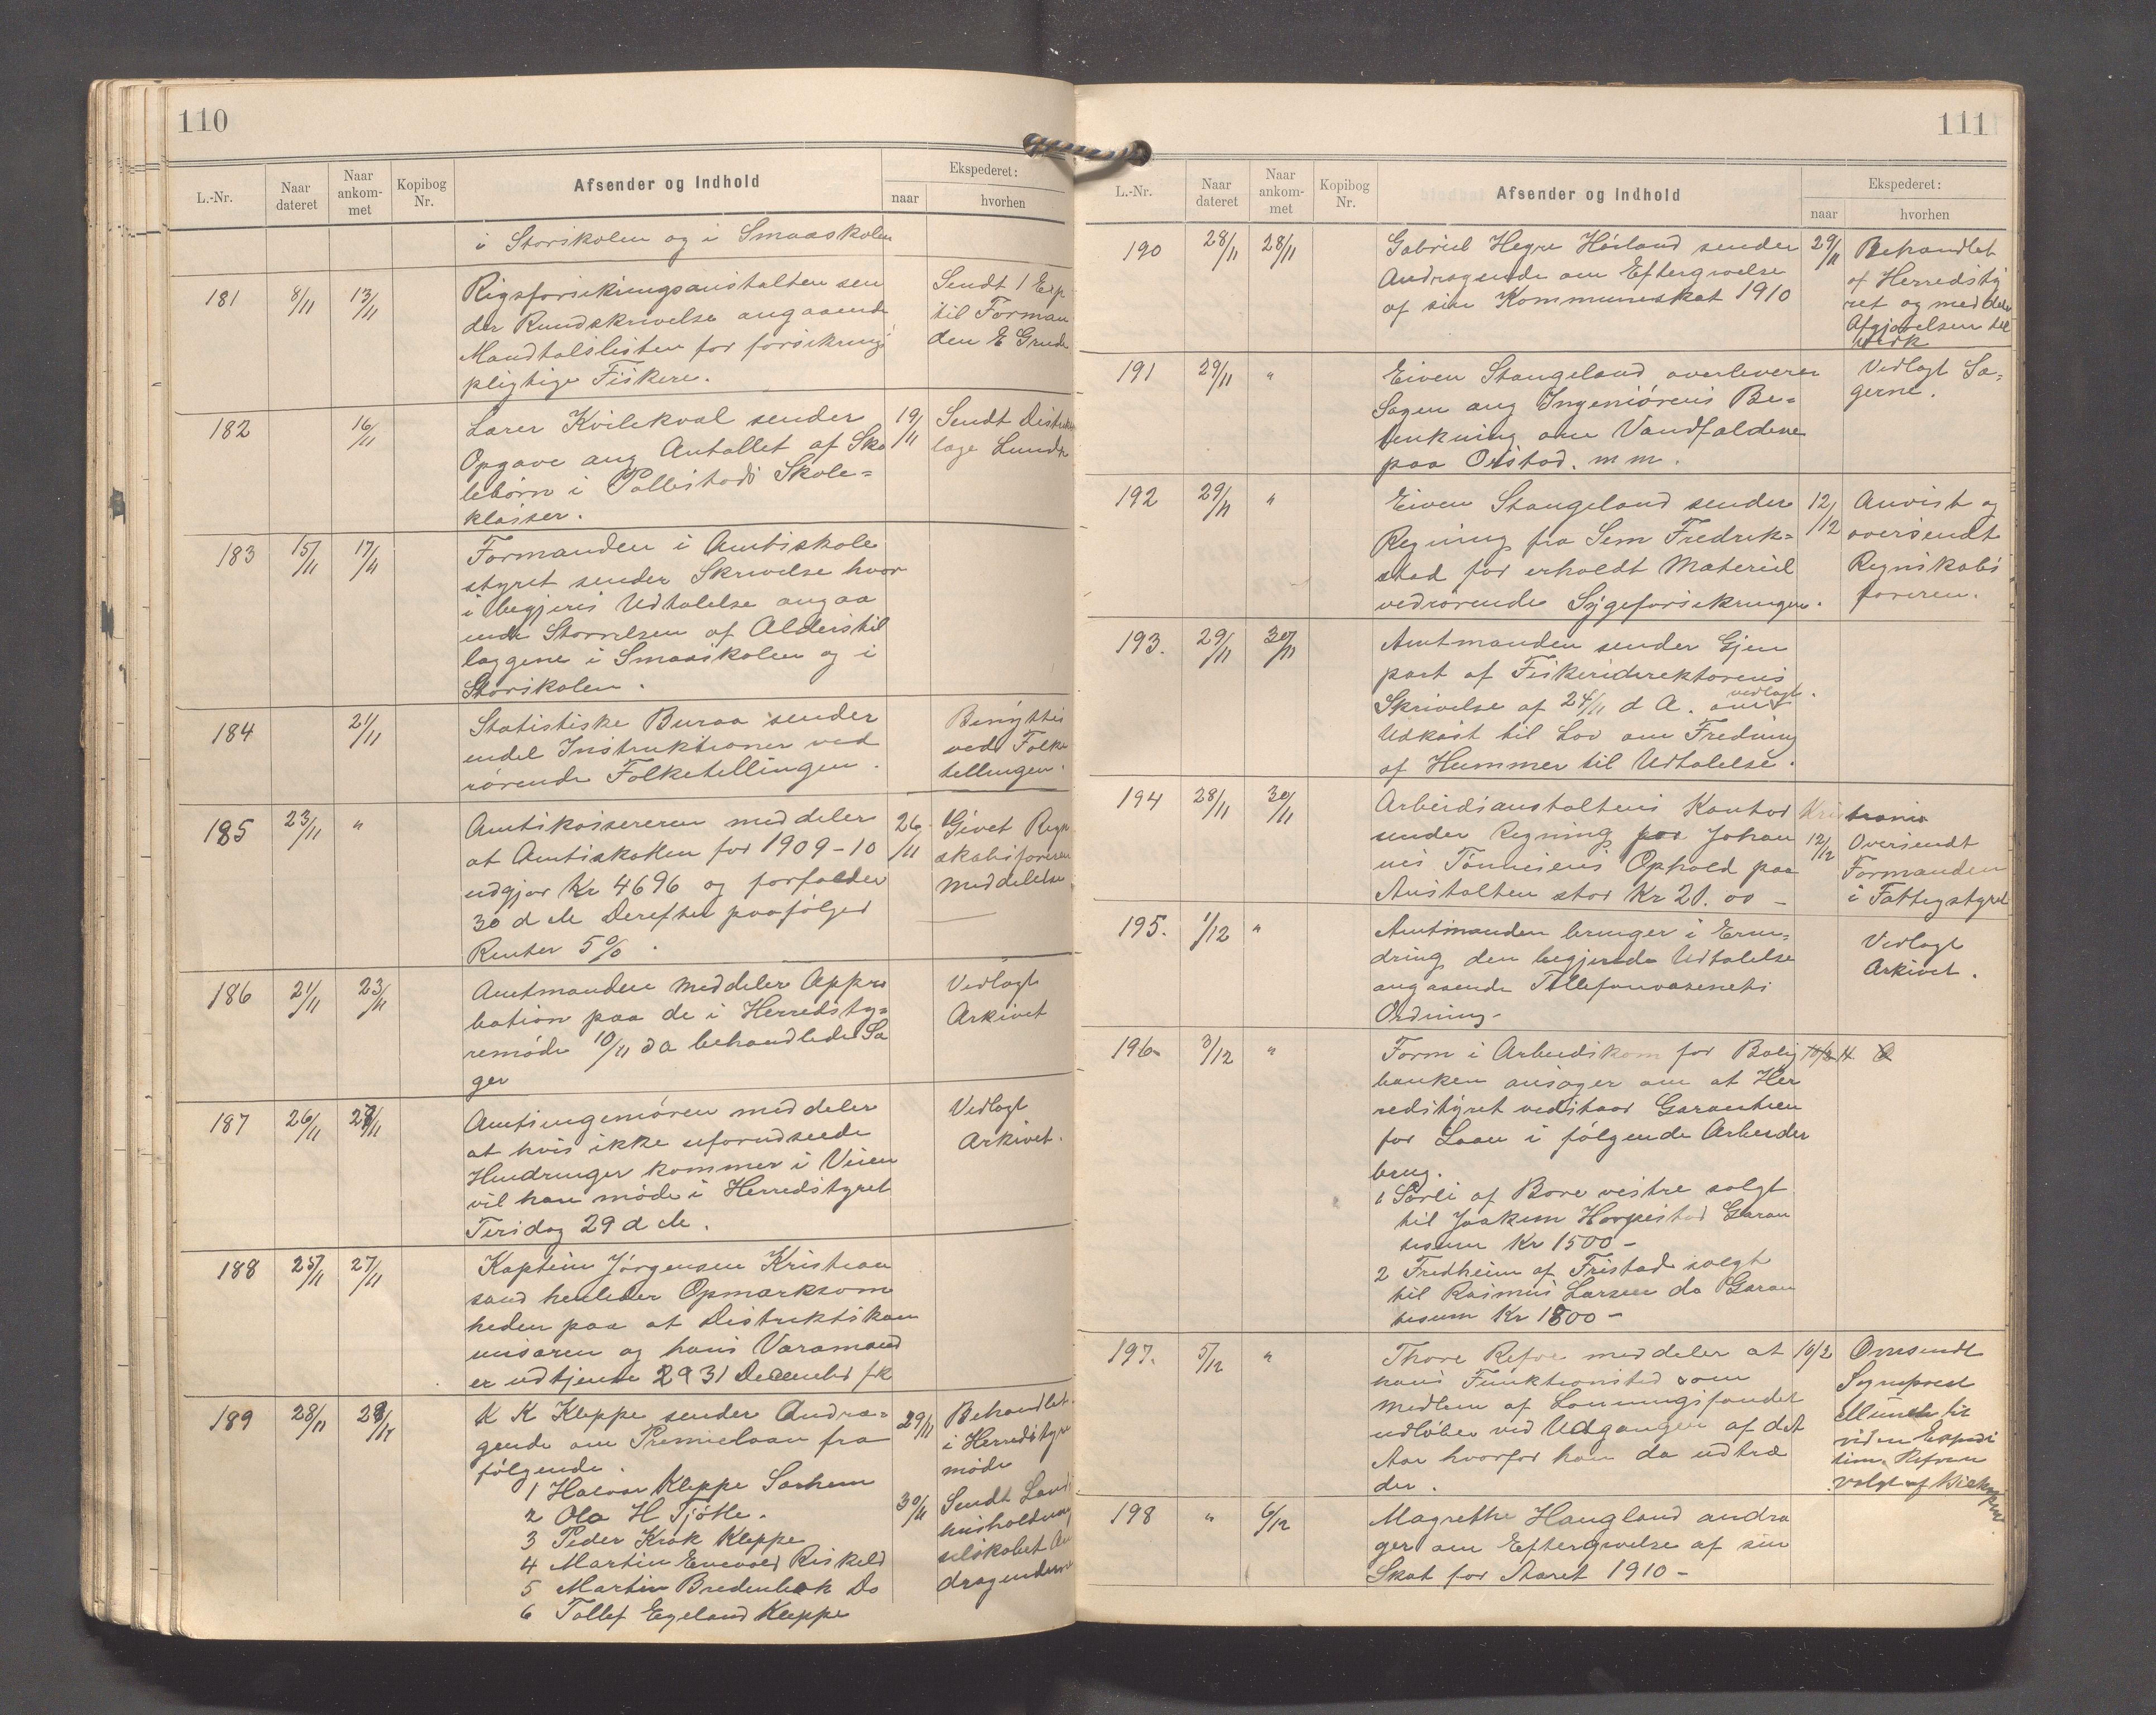 110
L.-Nr.
Naar dateret
Naar ankom- met
Kopibog Nr.
Afsender og Indhold
Ekspederet:
naar
hvorhen
i Storskolen og i Smaaskolen
181 8/11 13/11
Rigsforsikringsanstalten sen
der Rundskrivelse angaaende
Mandtalslisten for forsikrings
pligtige Fiskere.
Sendt 1 Exp
til Forman
den E Grude
182 16/11
Lærer Kvilekval sender
Opgave ang Antallet af Sko
lebørn i Pollestads Skole=
klasser.
19/11
Sendt Distrikts
læge Lunde
183 15/11 17/11
Formanden i Amtsskole
styret sender Skrivelse hvor
i begjæres Udtalelse angaa
ende Størrelsen af Alderstil
læggene i Smaaskolen og i
Storskolen.
184 21/11
Statistiske Buraa sender
endel Instruktioner ved
rørende Folketellingen.
Benyttes
ved Folke
tellingen.
185 23/11 "
Amtskassereren meddeler
at Amtsskatten for 1909-10
udgjør Kr 4696 og forfalder
30 d M Derefter paafølger
Renter 5%.
26/11
Givet Regn
skabsføreren
Meddelelse
186 21/11 23/11
Amtmanden Meddeler Appro
bation paa de i Herredsty=
remøde 10/11 d A behandlede Sa
ger
Vedlagt
Arkivet
187 26/11 28/11
Amtsingeniøren meddeler
at hvis ikke uforudseede
Hindringer kommer i Veien
vil han møde i Herredstyret
Tirsdag 29 d M.
Vedlagt
Arkivet.
188 25/11 27/11
Kaptein Jørgensen Kristian
sand henleder Opmærksom
heden paa at Distriktskom
misæren og hans Varamand
er udtjente 31 December fk
189 28/11 28/11
K K Kleppe sender Andra=
gende om Premielaan fra
følgende.
1 Halvor Kleppe Sørhem
2 Ola H Tjøtte.
3 Peder Krok Kleppe
4 Martin Enevold Riskeld
5 Martin Bredenbek Do
6 Tollef Egeland Kleppe
29/11
Behandlet
i Herredstyre
møde
30/11
Sendt Land
husholdning
selskabet An
dragenderne
111
L.-Nr.
Naar dateret
Naar ankom- met
Kopibog Nr.
Afsender og Indhold
Ekspederet:
naar
hvorhen
190 28/11 28/11
Gabriel Hegre Høiland sender
Andragende om Eftergivelse
af sin Kommuneskat 1910
29/11
Behandlet
af Herredsty
ret og meddelt
Afgjørelsen til
191 29/11 "
Eiven Stangeland overleverer
Sagen ang Ingeniørens Be=
tenkning om Vandfaldene
paa Orstad. m m.
Vedlagt Sa=
gerne.
192 29/11 "
Eiven Stangeland sender
Regning fra Sem Fredrik=
stad for erholdt Materiel
vedrørende Sygeforsikringen.
12/12
Anvist og
oversendt
Regnskabs
føreren.
193. 29/11 30/11
Amtmanden sender Gjen
part af Fiskeridirektørens
Skrivelse af 24/11 d A. vedlagt
Udkast til Lov om Fredning
af Hummer til Udtalelse.
194 28/11 30/11
Arbeidsanstaltens Kontor Kristiania
sender Regning for Johan
nes Tønnesens Ophold paa
Anstalten stor Kr 21.00 -
12/12
Oversendt
Formanden
i Fattigstyret
195. 1/12 "
Amtmanden bringer i Erin=
dring den begjerede Udtalelse
angaaende Tellefonvæsenets
Ordning-
Vedlagt
Arkivet.
196. 3/12 "
Form i Arbeidskom for Bolig
banken ansøger om at Her
redstyret vedstaar Garantien
for Laan i følgende Arbeider
brug.
1 Sørli af Bore vestre solgt
til Joakim Horpestad Garan
tisum Kr 1500 -
2 Fredheim af Fristad solgt
til Rasmus Larsen do Garan
tisum Kr 1800 -
197. 5/12 "
Thore Refve meddeler at
hans Funktionstid som
Medlem af Lønningsfondet
udløber ved Udgangen af det
Aar hvorfor han da udtræ
der.
Oversendt
Sogneprest
Munch til
viden Expedi
tion.
valgt af
198 " 6/12
Magrethe Haugland andra
ger om Eftergivelse af sin
Skat for Aaret 1910 -